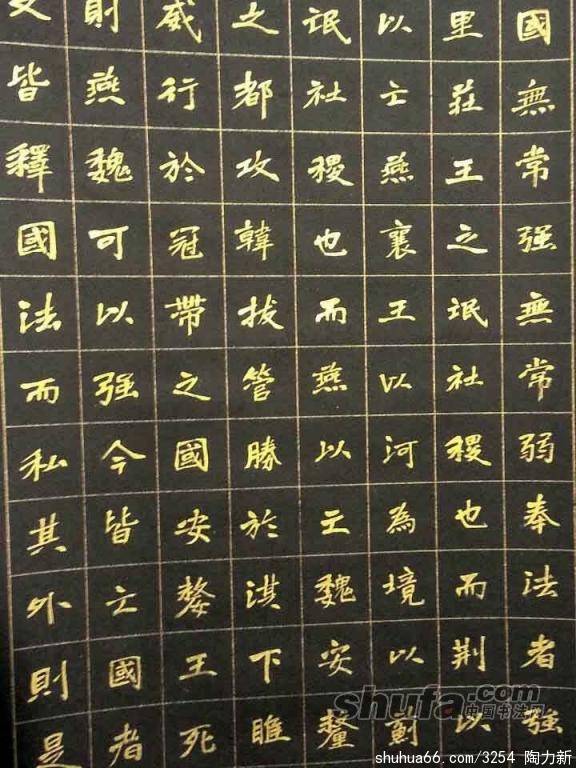 國無常强無常弱奉法者强
里莊王之氓社稷也而荆以
以亡燕襄王以河為境以薊
氓社稷也而燕以亡魏安釐
之都攻韓拔管勝於淇下睢
威行於冠帶之國安嫠王死
則燕魏可以强今皆亡國者
又皆釋國法而私其外則是
shufa.com
中国书法网
shuhua66.com/3254 陶力新